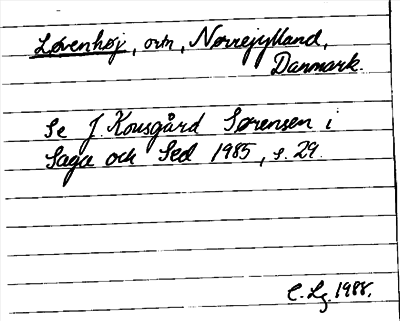 Løvenhøj, ortn, Nørrejylland,
Danmark.
Se J. Kousgård Sørensen i
Saga och Sed 1985, s. 29.
C. Lg. 1988.